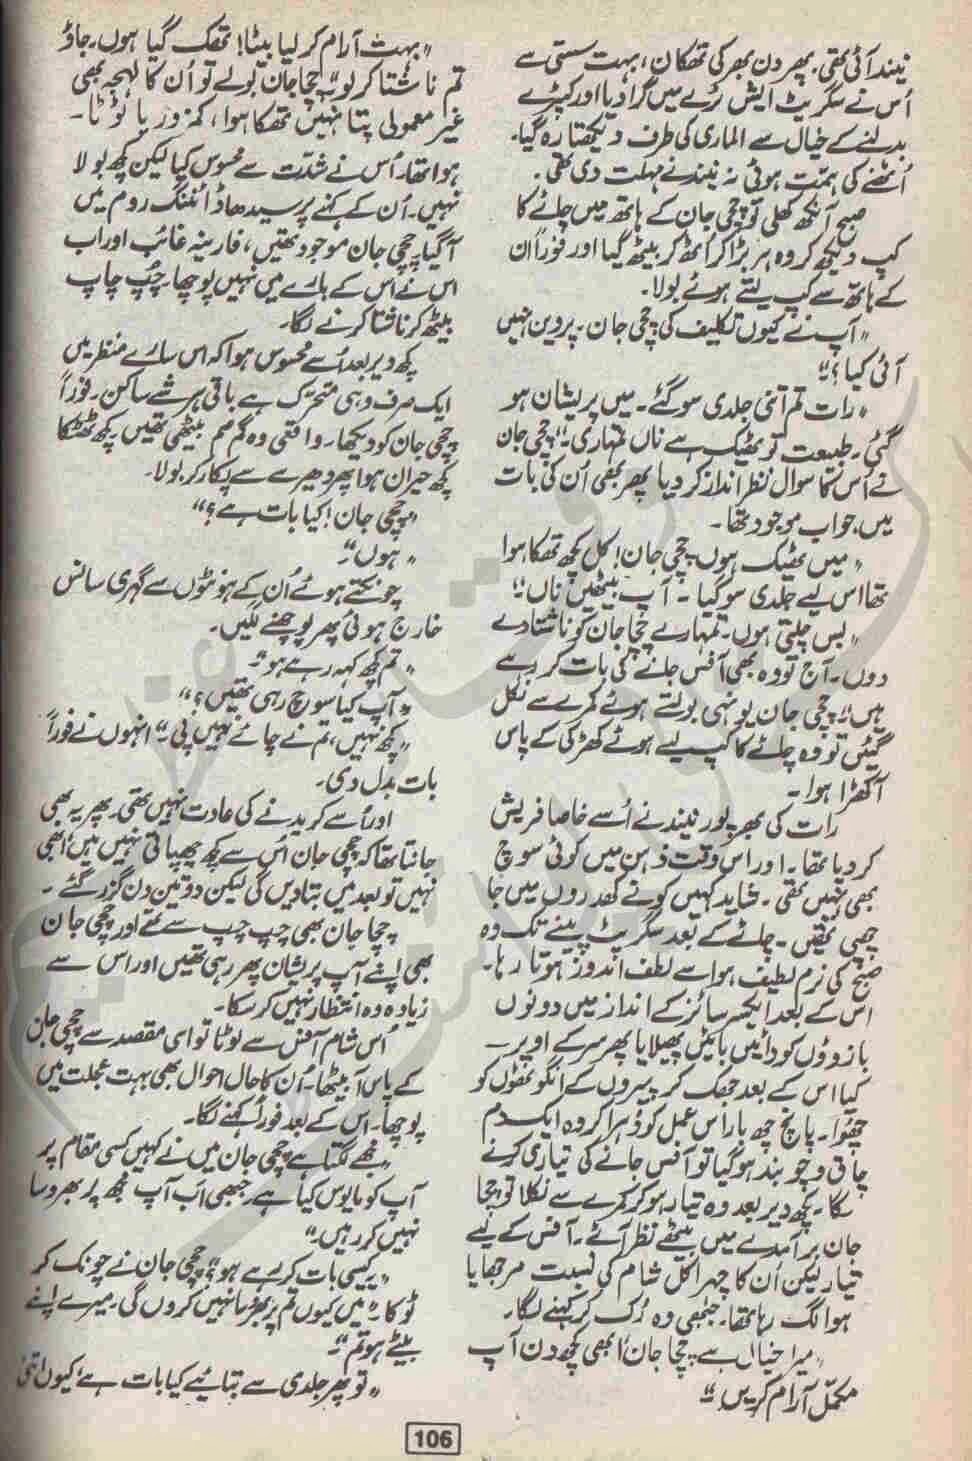 نیند آئی تھی۔ پھر دن بھر کی تھکان، بہت سستی سے
اُس نے سگریٹ ایش ٹرے میں گرا دیا اور کپڑے
بدلنے کے خیال سے الماری کی طرف دیکھتا رہ گیا۔
اُٹھنے کی ہمت ہوئی نہ نیند نے مہلت دی تھی۔
صبح آنکھ کھلی تو چچی جان کے ہاتھ میں چائے کا
کپ دیکھ کر وہ ہڑبڑا کر اُٹھ کر بیٹھ گیا اور فوراً ان
کے ہاتھ سے کپ لیتے ہوئے بولا۔
"آپ نے کیوں تکلیف کی چچی جان۔ پروین نہیں
آئی کیا؟"
"رات تم اتنی جلدی سو گئے۔ میں پریشان ہو
گئی۔ طبیعت تو ٹھیک ہے ناں تمہاری۔" چچی جان
نے اُس کا سوال نظر انداز کر دیا پھر بھی اُن کی بات
میں جواب موجود تھا۔
"میں ٹھیک ہوں چچی جان! کل کچھ تھکا ہوا
تھا اس لیے جلدی سو گیا۔ آپ بیٹھیں ناں"
"بس چلتی ہوں۔ تمہارے چچا جان کو ناشتا دے
دوں۔ آج تو وہ بھی آفس جانے کی بات کر رہے
ہیں" چچی جان یونہی بولتے ہوئے کمرے سے نکل
گئیں تو وہ چائے کا کپ لیے ہوئے کھڑکی کے پاس
آ کھڑا ہوا۔
رات کی بھرپور نیند نے اُسے خاصا فریش
کر دیا تھا۔ اور اس وقت ذہن میں کوئی سوچ
بھی نہیں تھی۔ شاید کہیں کونے کھدروں میں جا
چھپی تھیں۔ چائے کے بعد سگریٹ پینے تک وہ
صبح کی نرم لطیف ہوا سے لطف اندوز ہوتا رہا۔
اس کے بعد ایکسرسائز کے انداز میں دونوں
بازوؤں کو دائیں بائیں پھیلایا پھر سر کے اوپر۔
کیا اس کے بعد جھک کر پیروں کے انگوٹھوں کو
چھوا۔ پانچ چھ بار اس عمل کو دُہرا کر وہ ایک دم
چاق و چوبند ہو گیا تو آفس جانے کی تیاری کرنے
لگا۔ کچھ دیر بعد وہ تیار ہو کر کمرے سے نکلا تو چچا
جان برآمدے میں بیٹھے نظر آئے۔ آفس کے لیے
تیار لیکن اُن کا چہرا کل شام کی نسبت مرجھایا
ہوا لگ رہا تھا۔ جبھی وہ رُک کر کہنے لگا۔
"میرا خیال ہے چچا جان! ابھی کچھ دن آپ
مکمل آرام کریں"
"بہت آرام کر لیا بیٹا! تھک گیا ہوں۔ جاؤ
تم ناشتا کر لو" چچا جان بولے تو اُن کا لہجہ بھی
غیر معمولی پتا نہیں تھکا ہوا، کمزور یا ٹوٹا۔
ہوا تھا۔ اُس نے شدت سے محسوس کیا لیکن کچھ بولا
نہیں۔ اُن کے کہنے پر سیدھا ڈائننگ روم میں
آ گیا۔ چچی جان موجود تھیں، فارینہ غائب اور اب
اس نے اس کے بارے میں نہیں پوچھا۔ چُپ چاپ
بیٹھ کر ناشتا کرنے لگا۔
کچھ دیر بعد اُسے محسوس ہوا کہ اس سارے منظر میں
ایک صرف وہی متحرک ہے باقی ہر شے ساکن۔ فوراً
چچی جان کو دیکھا۔ واقعی وہ گم صم بیٹھی تھیں۔ کچھ ٹھٹکا
کچھ حیران ہوا پھر دھیرے سے پکار کر بولا۔
"چچی جان! کیا بات ہے؟"
"ہوں"
چونکتے ہوئے اُن کے ہونٹوں سے گہری سانس
خارج ہوئی پھر پوچھنے لگیں۔
"تم کچھ کہہ رہے ہو"
"آپ کیا سوچ رہی تھیں؟"
"کچھ نہیں، تم نے چائے نہیں پی۔" انہوں نے فوراً
بات بدل دی۔
اور اُسے کریدنے کی عادت نہیں تھی۔ پھر یہ بھی
جانتا تھا کہ چچی جان اُس سے کچھ چھپاتی نہیں ہیں۔ ابھی
نہیں تو بعد میں بتا دیں گی لیکن دو تین دن گزر گئے۔
چچا جان بھی چپ چپ سے تھے اور چچی جان
بھی اپنے آپ پریشان پھر رہی تھیں اور اس سے
زیادہ وہ انتظار نہیں کر سکا۔
اُس شام آفس سے لوٹا تو اسی مقصد سے چچی جان
کے پاس آ بیٹھا۔ اُن کا حال احوال بھی بہت عجلت میں
پوچھا۔ اس کے بعد فوراً کہنے لگا۔
"مجھے لگتا ہے چچی جان میں نے کہیں کسی مقام پر
آپ کو مایوس کیا ہے۔ جبھی اب آپ مجھ پر بھروسا
نہیں کر رہیں۔"
"یہ کیسی بات کر رہے ہو؟" چچی جان نے چونک کر
ٹوکا۔ "میں کیوں تم پر بھروسا نہیں کروں گی۔ میرے اپنے
بیٹے ہو تم"
"تو پھر جلدی سے بتائیے کیا بات ہے؟ کیوں اتنی
106